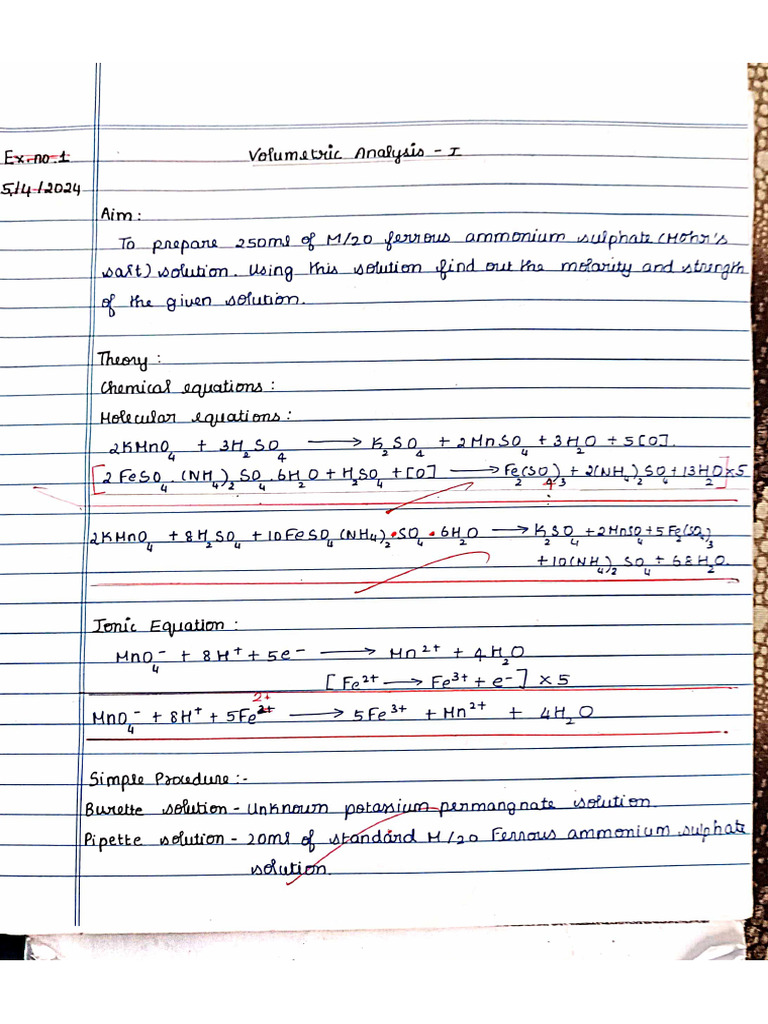 Ex.no.1
Volumetric Analysis - I
5/4/2024
Aim:
To prepare 250ml of M/20 ferrous ammonium sulphate (Mohr's
salt) solution. Using this solution find out the molarity and strength
of the given solution.
Theory:
Chemical equations:
Molecular equations:
2KMnO₄ + 3H₂SO₄ ⟶ K₂SO₄ + 2MnSO₄ + 3H₂O + 5[O].
[2FeSO₄.(NH₄)₂SO₄.6H₂O + H₂SO₄ + [O] ⟶ Fe₂(SO₄)₃ + 2(NH₄)₂SO₄ + 13H₂O] × 5
2KMnO₄ + 8H₂SO₄ + 10FeSO₄(NH₄)₂•SO₄•6H₂O ⟶ K₂SO₄ + 2MnSO₄ + 5Fe₂(SO₄)₃
+ 10(NH₄)₂SO₄ + 68H₂O.
Ionic Equation:
MnO₄⁻ + 8H⁺ + 5e⁻ ⟶ Mn²⁺ + 4H₂O
[Fe²⁺ ⟶ Fe³⁺ + e⁻] × 5
MnO₄⁻ + 8H⁺ + 5Fe²⁺ ⟶ 5Fe³⁺ + Mn²⁺ + 4H₂O
Simple Procedure:-
Burette solution - Unknown potassium permangnate solution.
Pipette solution - 20ml of standard M/20 Ferrous ammonium sulphate
solution.